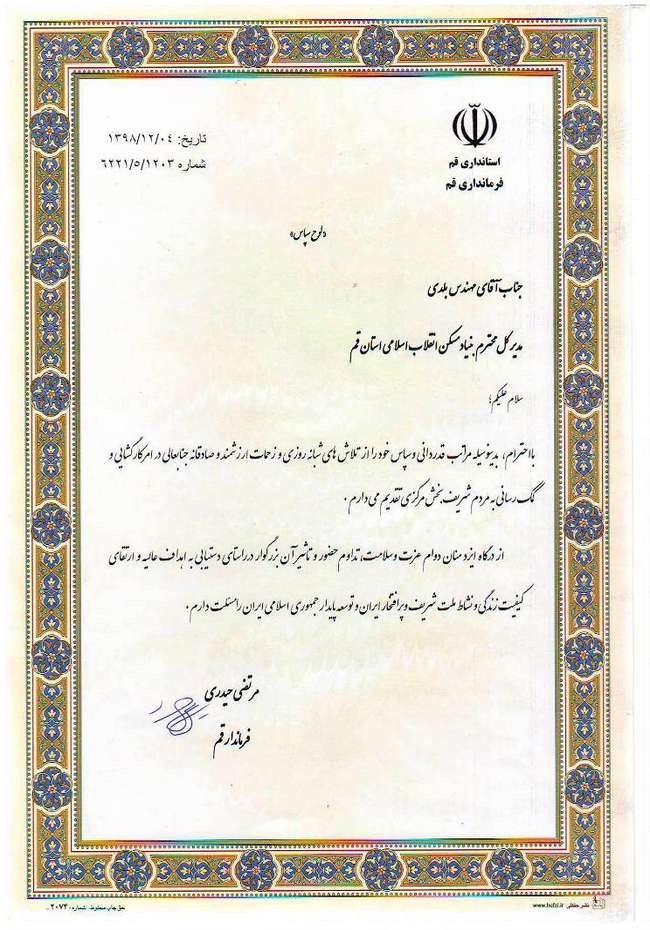 استانداری قم
فرمانداری قم
تاریخ: ۱۳۹۸/۱۲/۰۴
شماره ۶۲۲۱/۵/۱۲۰۳
«لوح سپاس»
جناب آقای مهندس بلدی
مدیرکل محترم بنیاد مسکن انقلاب اسلامی استان قم
سلام علیکم؛
بااحترام، بدینوسیله مراتب قدردانی وسپاس خود را از تلاش های شبانه روزی و زحمات ارزشمند و صادقانه جنابعالی در امر کارگشایی و
کمک رسانی به مردم شریف بخش مرکزی تقدیم می دارم.
از درگاه ایزد منان دوام عزت وسلامت، تداوم حضور و تاثیر آن بزرگوار در راستای دستیابی به اهداف عالیه و ارتقای
کیفیت زندگی و نشاط ملت شریف و پر افتخار ایران و توسعه پایدار جمهوری اسلامی ایران را مسئلت دارم.
مرتضی حیدری
فرماندار قم
حق چاپ محفوظ. شماره: ۲۰۷۳
www.hefzi.ir